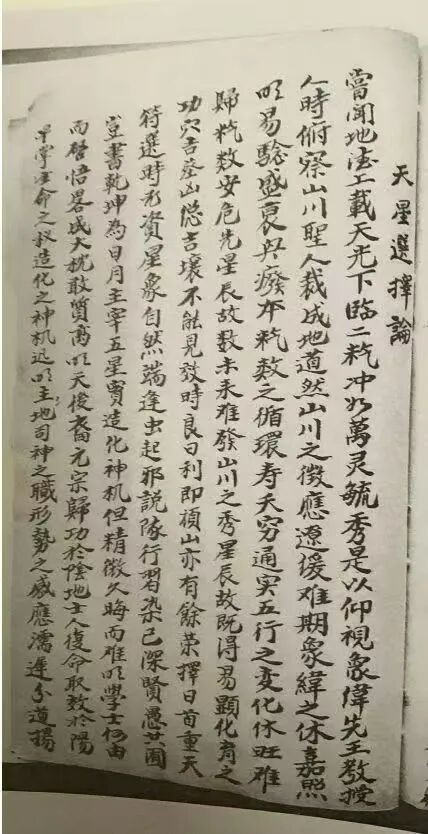 天星選擇論
嘗聞地法上載天光下臨二炁冲和萬灵毓秀是以仰視象偉先王教授
人時俯察山川聖人裁成地道然山川之徵應遼缓难期象緯之休嘉照
明易騐盛衰兴癈夲炁数之循環寿夭穷通实五行之变化休旺难
歸炁数安危先星辰故数未未难發山川之秀星辰故既得易顯化育之
功穴吉𦵏凶隐吉壤不能見效時良日利即禎山亦有餘荣擇日首重天
符選時形資星象自然端逢虫起邪説隊行習染已深賢愚共囿
豈書乾坤為日月主宰五星實造化神机但精微久晦而难明學士何由
而啓悟畧成大㮣敢質高明天後裔元宗歸功於陰地士人復命取效於陽
星宰生命之权造化之神机迟明主地司神之職形勢之感應濡遲分道揚